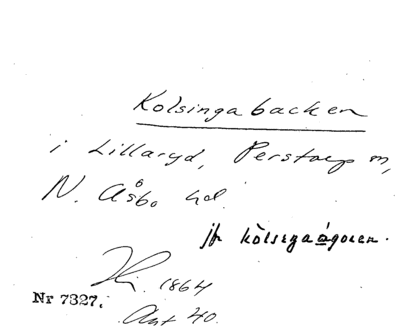 Kolsingabacken
i Lillaryd, Perstorp sn,
N. Åsbo hd.
jfr kölsegaågoren.
1864
Nr 7327.
Ant 40.